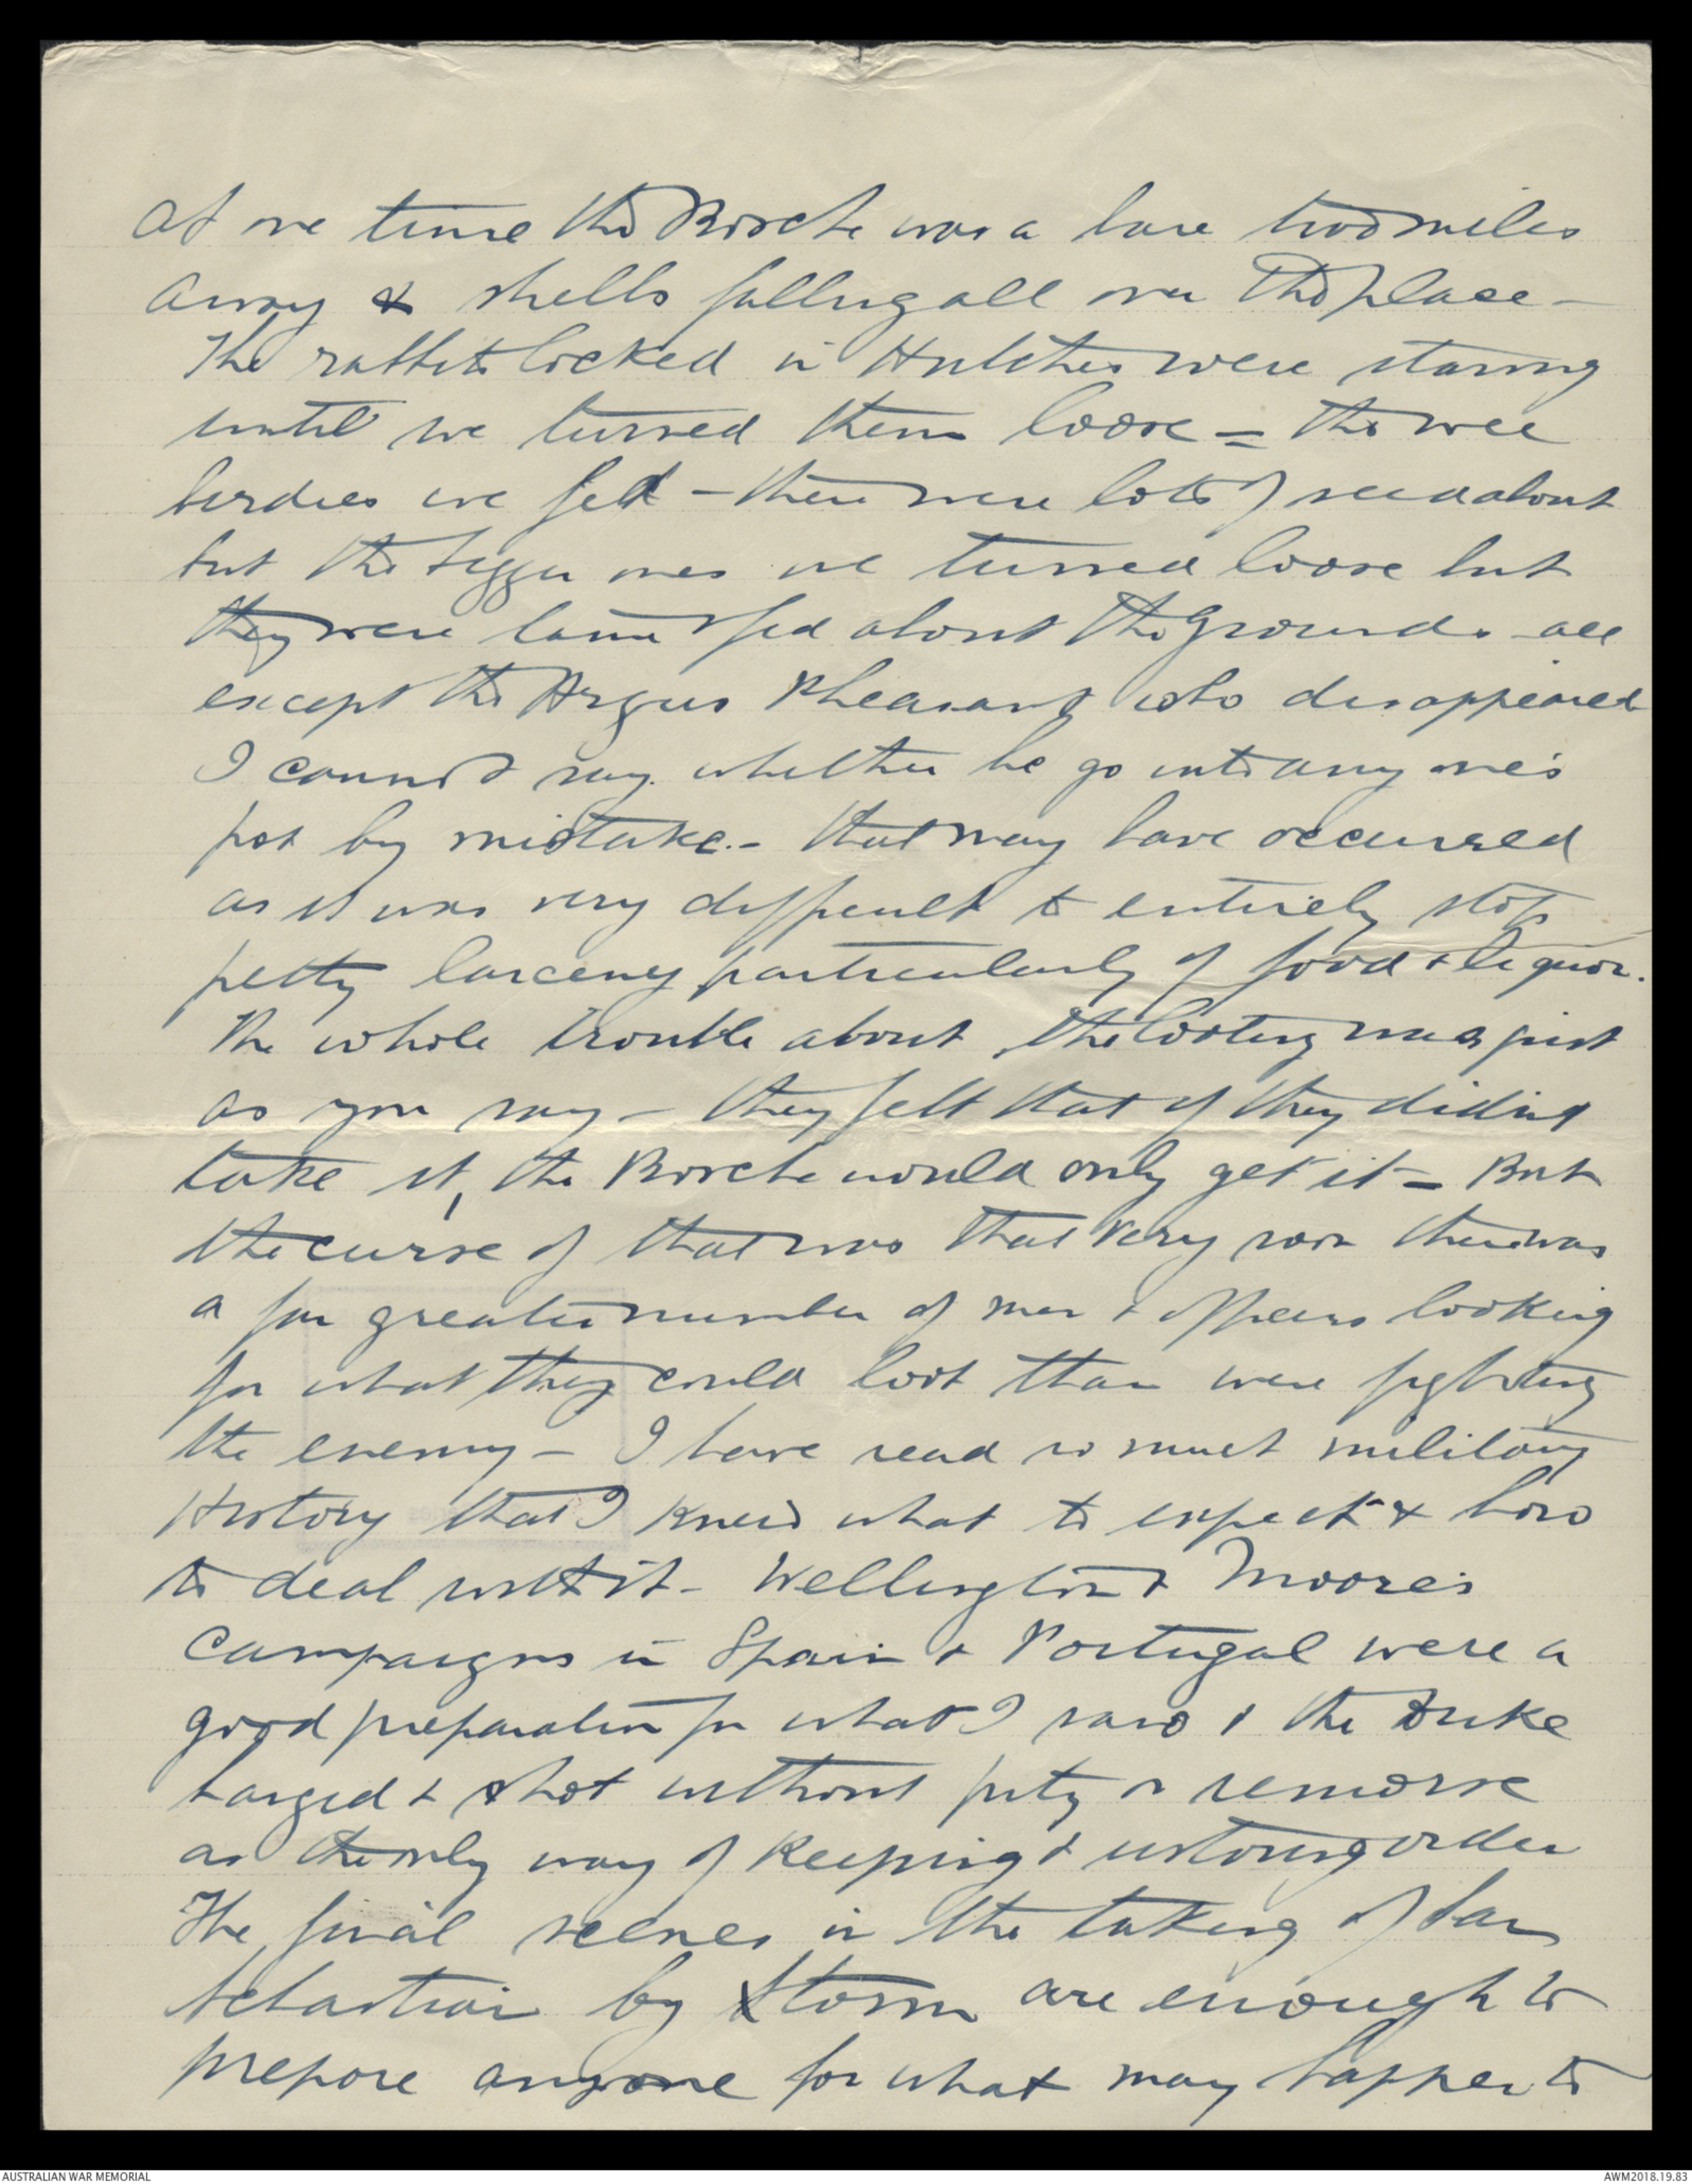 At one time the Bosche was a bare two miles
away & shells falling all over the place -
The rabbits locked in Hutches were starving
until we turned them loose = the wee
birdies we fed - there were lots of seed about
but the bigger ones we turned loose but
they were tame & fed about the grounds all
except the Argus Pheasant who disappeared
I cannot say whether he go into any one's
pot by mistake. - that may have occurred
as it was very difficult to entirely stop
petty larceny particularly of food & liquor.
The whole trouble about the looting was just
as you say - they felt that if they didint
take it, the Bosche would only get it - But
the curse of that was that very soon there was
a far greater number of men & officers looking
for what they could loot than were fighting
the enemy - I have read so much military
History that I knew what to expect & how
to deal with it - Wellington & Moore's
campaigns in Spain & Portugal were a
good preparation for what I saw & the Duke
hanged & shot without pity or remorse
as the only way of keeping & restoring order
The final scenes in the taking of San
Sebastian by Storm are enough to
prepare anyone for what may happen to
AUSTRALIAN WAR MEMORIAL
AWM2018.19.83